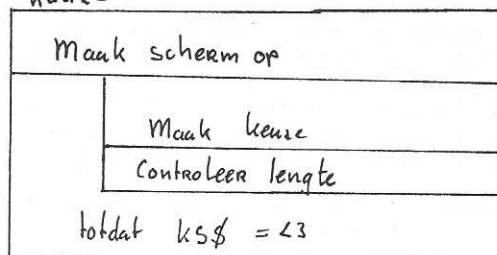 Maak scherm op
Maak keuze
Controleer lengte
totdat KS$ = <3